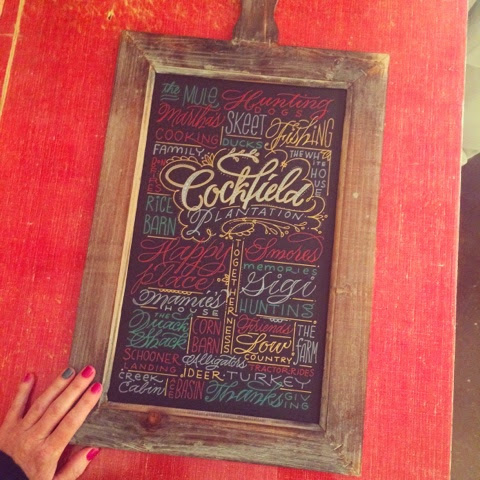 the MULE
Hunting
DOGS
Martha's
COOKING
SKEET
DUCKS
Fishing
FAMILY
THE WHITE HOUSE
Cockfield
PLANTATION
RICE
BARN
Happy
Place
TOGETHERNESS
S'mores
memories
Gigi
HUNTING
Mamie's
HOUSE
THE
Quack
Shack
CORN
BARN
Friends
Low
COUNTRY
THE FARM
SCHOONER
LANDING
Alligators
TRACTOR RIDES
CREEK
Cabin
DEER
TURKEY
BASIN
Thanks
GIVING